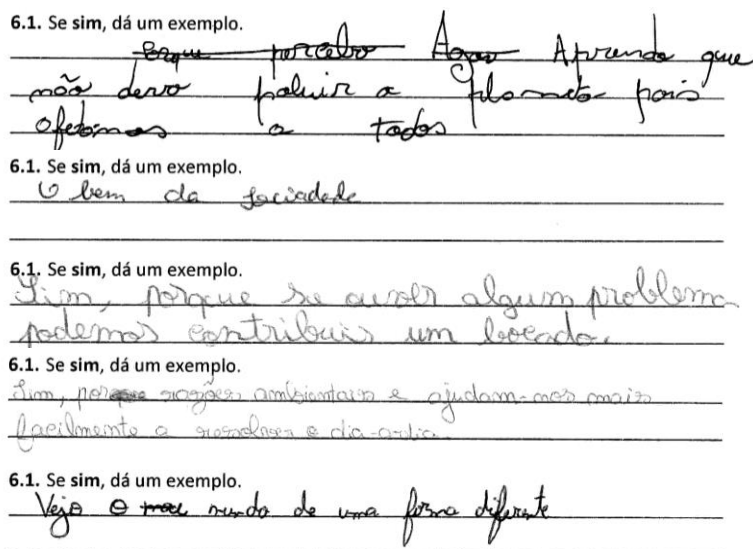 6.1. Se sim, dá um exemplo.
porque percebo Agora Aprendo que
não devo poluir o planeta pois
afetamos a todos
6.1. Se sim, dá um exemplo.
O bem da sociedade
6.1. Se sim, dá um exemplo.
Sim, porque se ouvir algum problema
podemos contribuir um bocado.
6.1. Se sim, dá um exemplo.
Sim, porque razões ambientais e ajudam-nos mais
facilmente a resolver o dia-a-dia.
6.1. Se sim, dá um exemplo.
Vejo o mundo de uma forma diferente